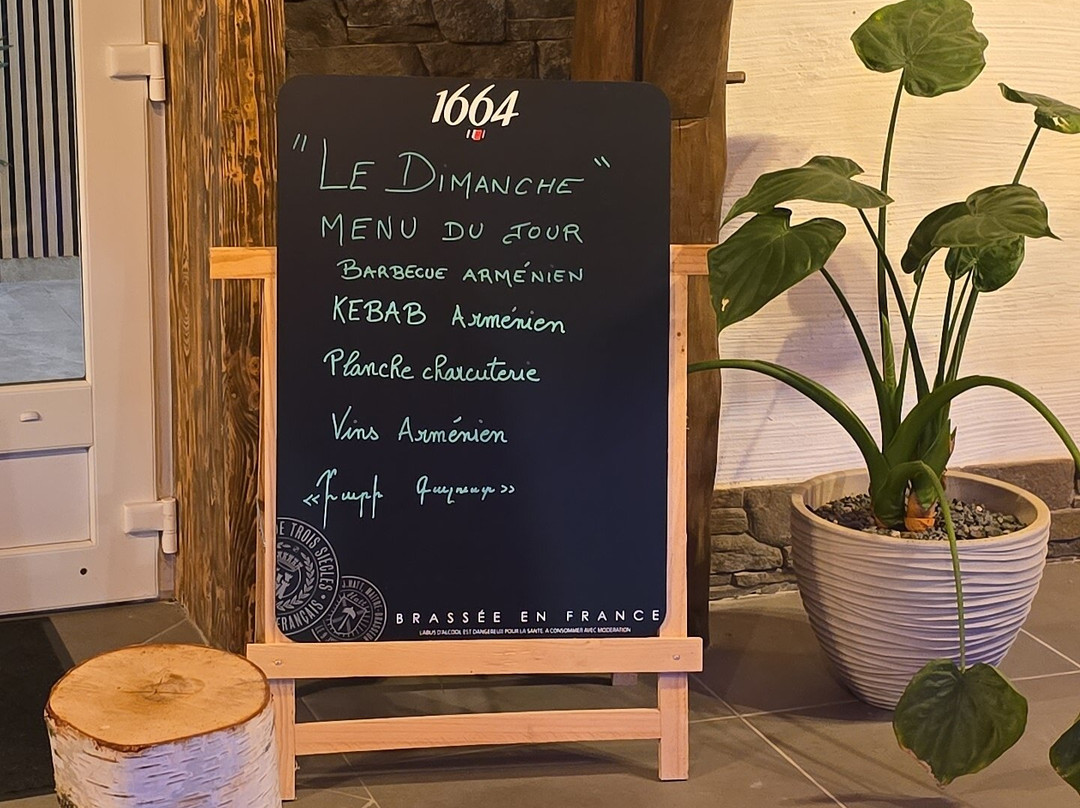 1664
"LE DIMANCHE"
MENU DU JOUR
BARBECUE ARMÉNIEN
KEBAB Arménien
Planche charcuterie
Vins Arménien
«Բարի Գալուստ»
DE TROIS SIÈCLES
FRANÇAIS
BRASSÉE EN FRANCE
L'ABUS D'ALCOOL EST DANGEREUX POUR LA SANTÉ. A CONSOMMER AVEC MODERATION